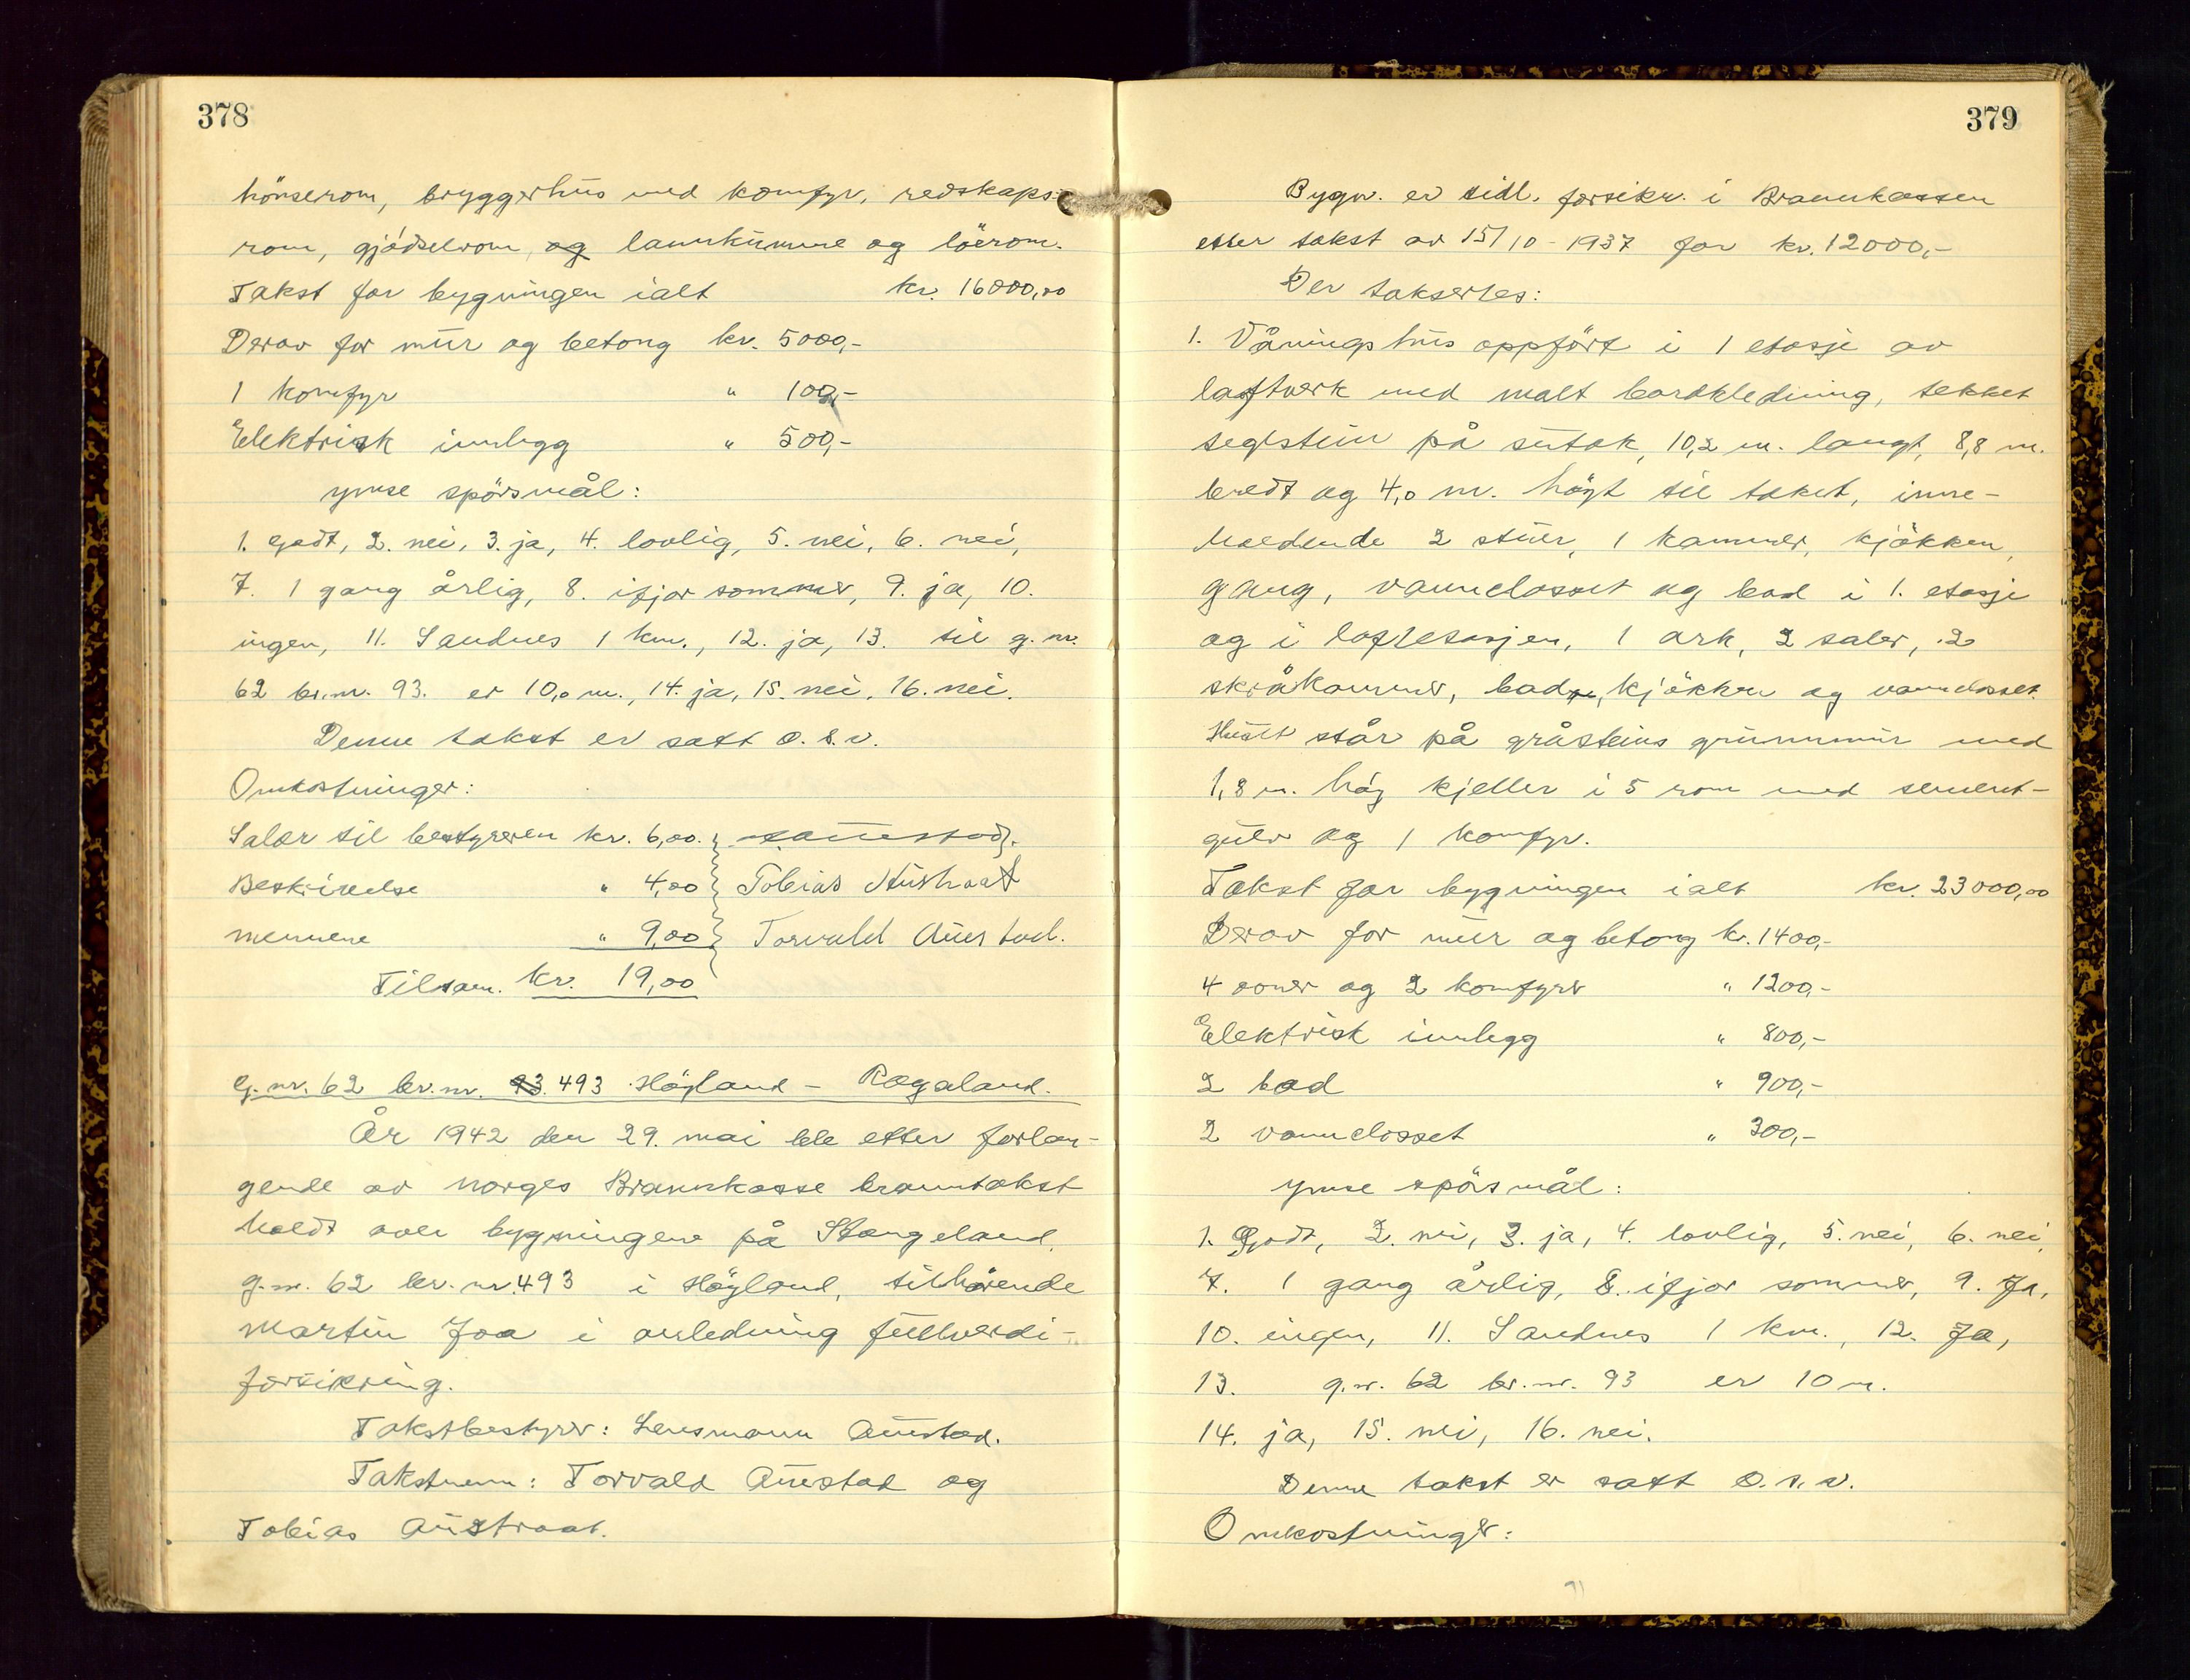 378
hönserom, bryggerhus med komfyr, redskaps-
rom, gjödselrom, og lannkumme og löerom.
Takst for bygningen ialt kr. 16000,00
Derav for mur og betong kr. 5000,-
1 komfyr " 100,-
Elektrisk innlegg " 500,-
Ymse spörsmål:
1. godt, 2. nei, 3. ja, 4. lovlig, 5. nei, 6. nei,
7. 1 gang årlig, 8. ifjor sommer, 9. ja, 10.
ingen, 11. Sandnes 1 km., 12. ja, 13. til g.nr.
62 br.nr. 93. er 10,0 m., 14. ja, 15. nei, 16. nei.
Denne takst er satt o.s.v.
Omkostninger:
Salær til bestyreren kr. 6,00. Sauestad.
Beskrivelse " 4,00 Tobias Austraat
mennene " 9,00 Torvald Auestad.
Tilsam. kr. 19,00
G.nr. 62 br.nr. 93. 493 Högland - Rogaland.
År 1942 den 29. mai ble etter forlan-
gende av Norges Brannkasse branntakst
holdt over bygningene på Stangeland,
g.nr. 62 br.nr. 493 i Högland, tilhörende
Martin Joa i anledning fullverdi-
forsikring.
Takstbestyrer: Lensmann Auestad.
Takstmenn: Torvald Auestad og
Tobias Austraat.
379
Bygn. er tidl. forsikr. i Brannkassen
etter takst av 15/10-1937 for kr. 12000,-
Der takseres:
1. Våningshus oppfört i 1 etasje av
laftverk med malt bordkledning, tekket
teglstein på sutak, 10,2 m. langt, 8,8 m.
bredt og 4,0 m. högt til taket, inne-
holdende 2 stuer, 1 kammer, kjökken,
gang, vannclosset og bad i 1. etasje
og i loftetasjen, 1 ark, 2 saler, 2
skråkammer, bad, kjökken og vannclosset.
Huset står på gråsteins grunnmur med
1,8 m. hög kjeller i 5 rom med sement-
gulv og 1 komfyr.
Takst for bygningen ialt kr. 23000,00
Derav for mur og betong kr. 1400,-
4 ovner og 2 komfyrer " 1200,-
Elektrisk innlegg " 800,-
2 bad " 900,-
2 vannclosset " 300,-
Ymse spörsmål:
1. Godt, 2. nei, 3. ja, 4. lovlig, 5. nei, 6. nei,
7. 1 gang årlig, 8. ifjor sommer, 9. Ja,
10. ingen, 11. Sandnes 1 km., 12. Ja,
13. g.nr. 62 br.nr. 93 er 10 m.
14. ja, 15. nei, 16. nei.
Denne takst er satt o.s.v.
Omkostninger: